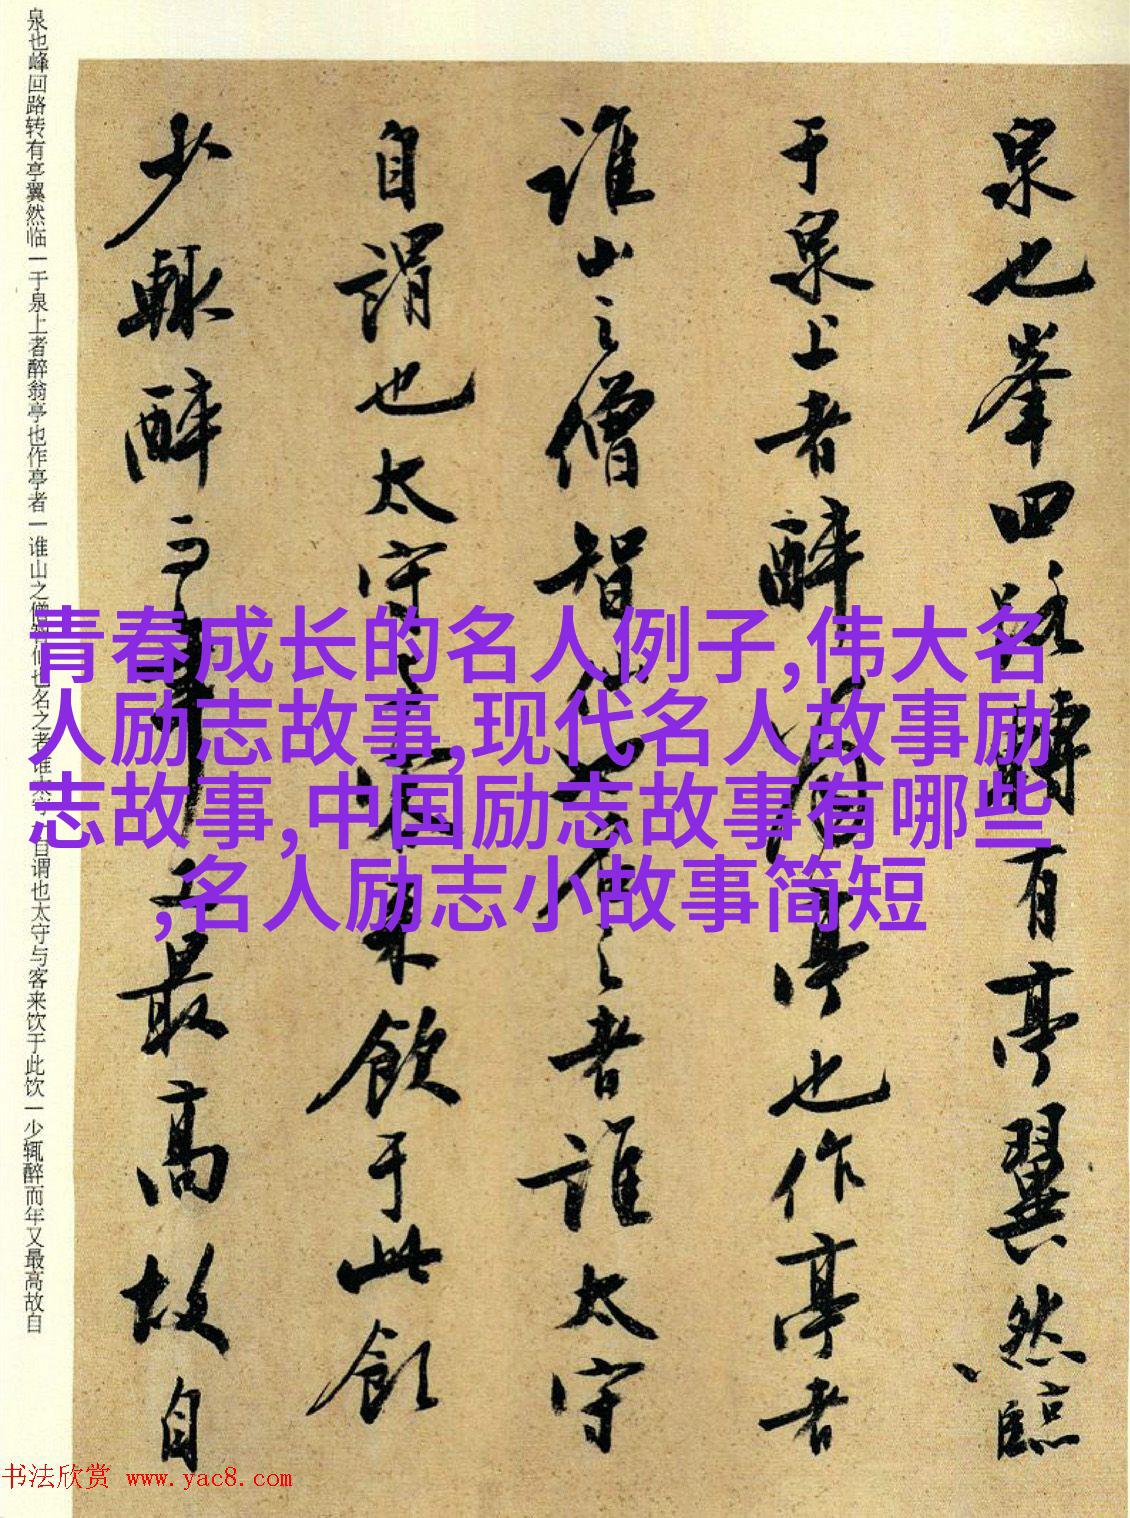 泉也峰回路转有亭翼然临一于泉上者醉翁亭也作亭者一谁山之僧智仙也名之者谁太守一自谓也太守与客来饮于此饮一少辄醉而年又最高故自
泉也峯回路轉有亭翼然臨
于泉上者醉翁亭也作亭者
誰山之僧智仙也名之者誰太守
自謂也太守与客来飲于此飲
少輒醉而年又最高故自
青春成长的名人例子,伟大名
人励志故事,现代名人故事励
志故事,中国励志故事有哪些
,名人励志小故事简短
书法欣赏 www.yac8.com